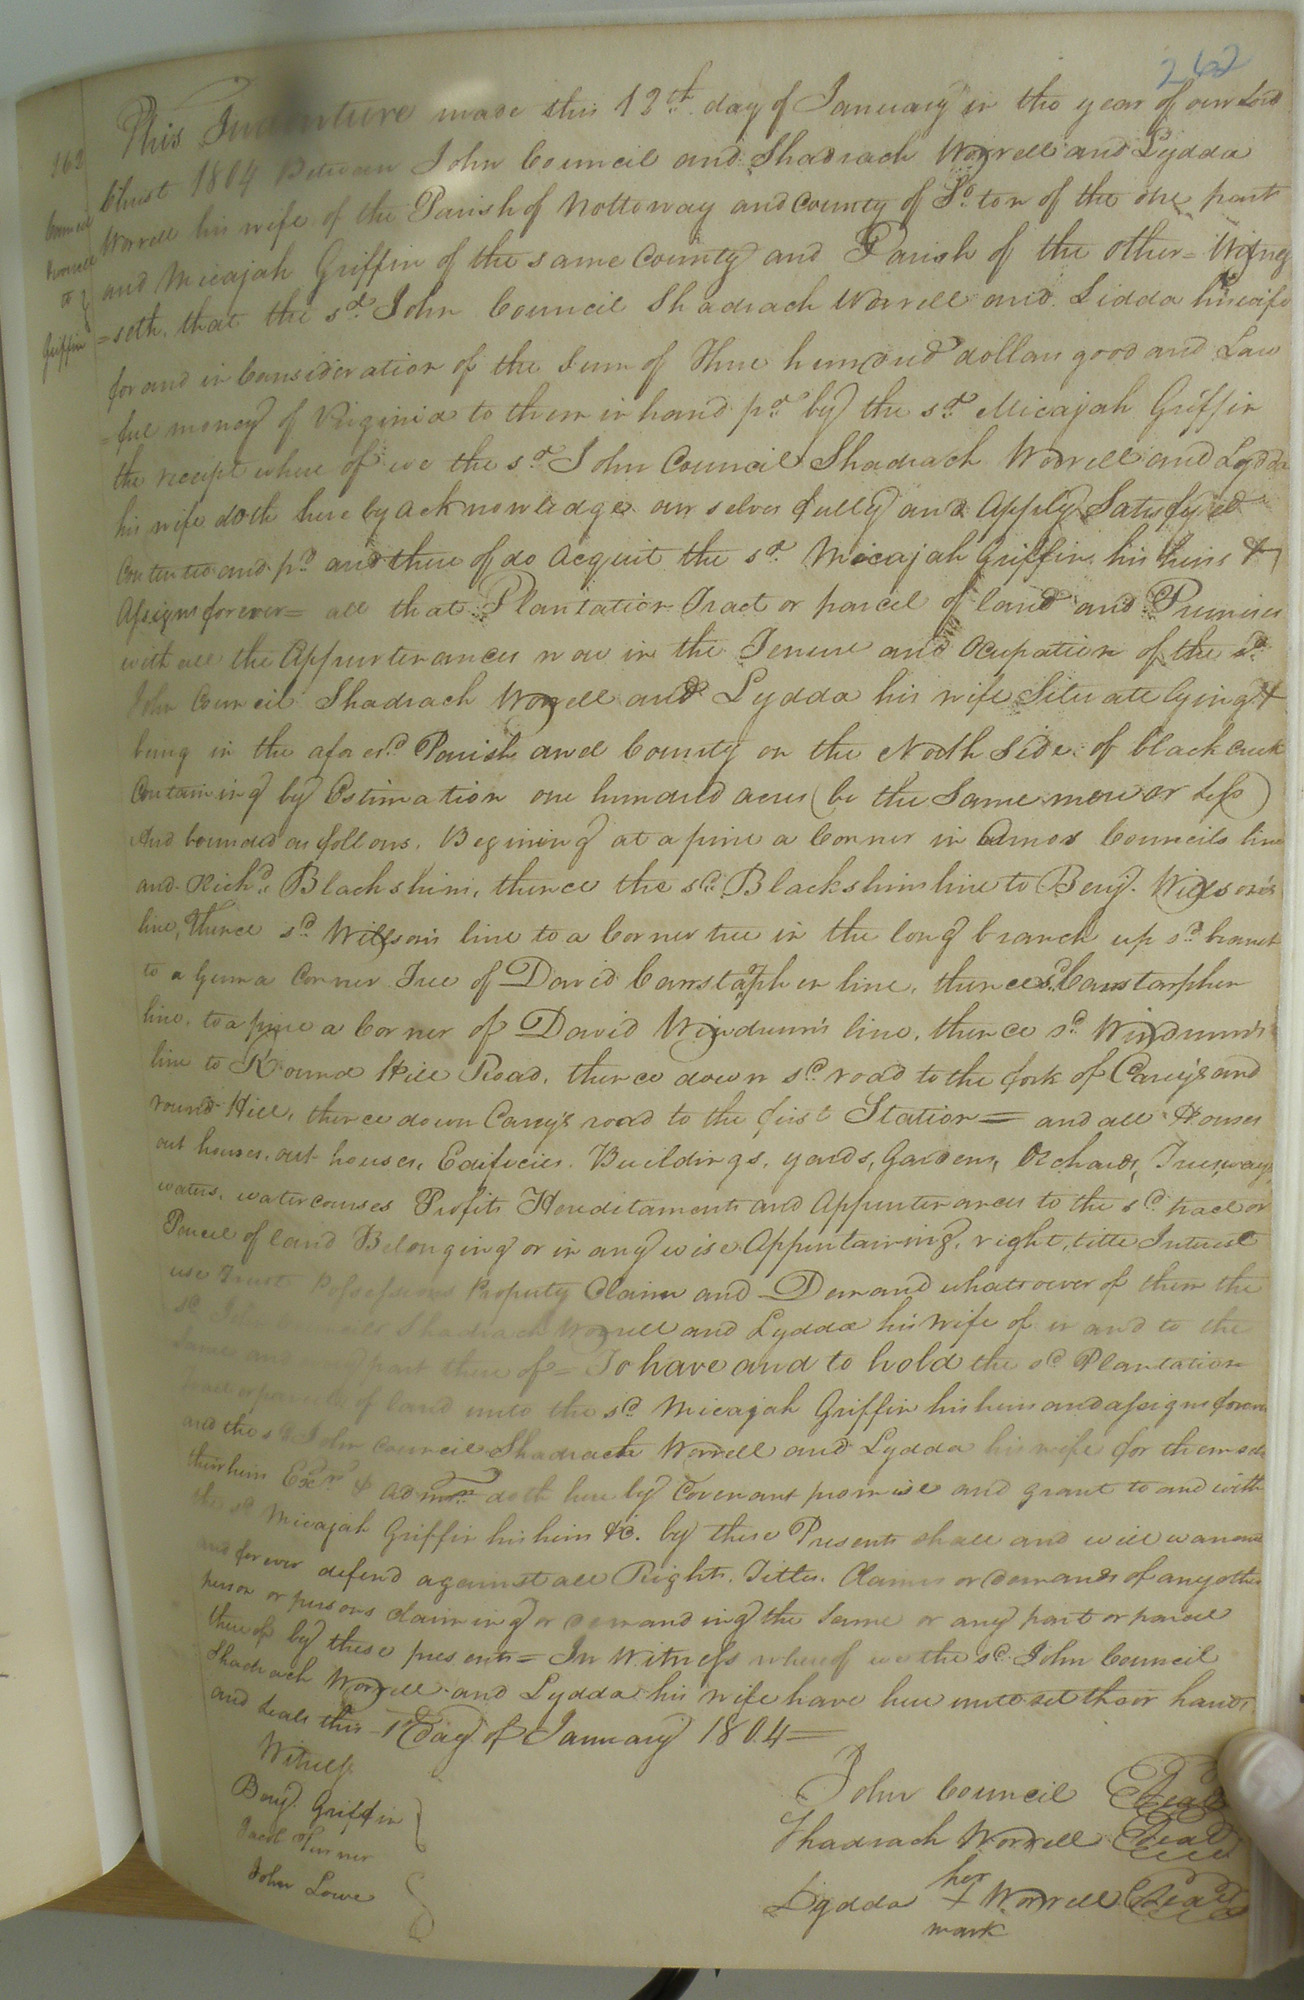 262
162
Council
Worrell
to
Griffin
This Indenture made this 12th day of January in the year of our Lord
Christ 1804 Between John Council and Shadrach Worrell and Lydda
Worrell his wife of the Parish of Nottoway and County of So.ton of the one part
and Micajah Griffin of the same County and Parish of the other = Witnes
=seth, that the sd. John Council Shadrach Worrell and Lidda his wife
for and in Consideration of the Sum of Three hundred dollars good and Law
=ful money of Virginia to them in hand pd. by the sd. Micajah Griffin
the receipt where of we the sd. John Council Shadrach Worrell and Lydda
his wife doth here by acknowledge our selves fully and Apply Satisfyed
Contented and pd. and there of do Acquit the sd. Micajah Griffin his heirs &
Assigns forever = all that Plantation Tract or parcel of land and Premises
with all the Appurtenances now in the Tenure and Ocupation of the sd.
John Council Shadrach Worrell and Lydda his wife Situate lying &
being in the afores.d Parish and County on the North Side of black Creek
Containing by Estimation one hundred acres (be the Same more or Less)
And bounded as follows. Begining at a pine a Corner in Amos Councils line
and Richd. Blackshins, thence the sd. Blackshins line to Benj. Willson's
line, Thence sd. Willson's line to a Corner tree in the long branch up sd. branch
to a Gum a Corner Tree of David Carrstaphen line, thence sd. Carrstarphen
line, to a pine a Corner of David Windrum's line, thence sd. Windrum's
line to Round Hill Road, thence down sd. road to the fork of Carey's and
round Hill, thence down Carry's road to the first Station = and all Houses
out houses, out houses, Edificies, Buildings, yards, Gardens, Orchards, Trees, ways,
waters, watercourses Profits Hereditaments and Appurtenances to the sd. tract or
Parcel of land Belonging or in any wise Appurtaining, right, title Interest
use Trust Possessions Property Claim and Demand whatsoever of them the
sd. John Council Shadrach Worrell and Lydda his wife of in and to the
Same and part there of = To have and to hold the sd. Plantation
tract or parcels of land unto the sd. Micajah Griffin his heirs and assigns forever
and the sd. John Council Shadrach Worrell and Lydda his wife for them selves
their heirs Exrs. & Admrs. doth here by Covenant promise and grant to and with
the sd. Micajah Griffin his heirs &c. by these Presents shall and will warrant
and forever defend against all Rights, Titles, Claims or Demands of any other
person or persons claiming or demanding the Same or any part or parcel
there of by these presents = In Witness whereof we the sd. John Council
Shadrach Worrell and Lydda his wife have here unto set their hands
and Seals this Day of January 1804 =
Witness
Benj. Griffin
Jacob Turner
John Lowe
John Council Seal
Shadrach Worrell Seal
her
Lydda + Worrell Seal
mark